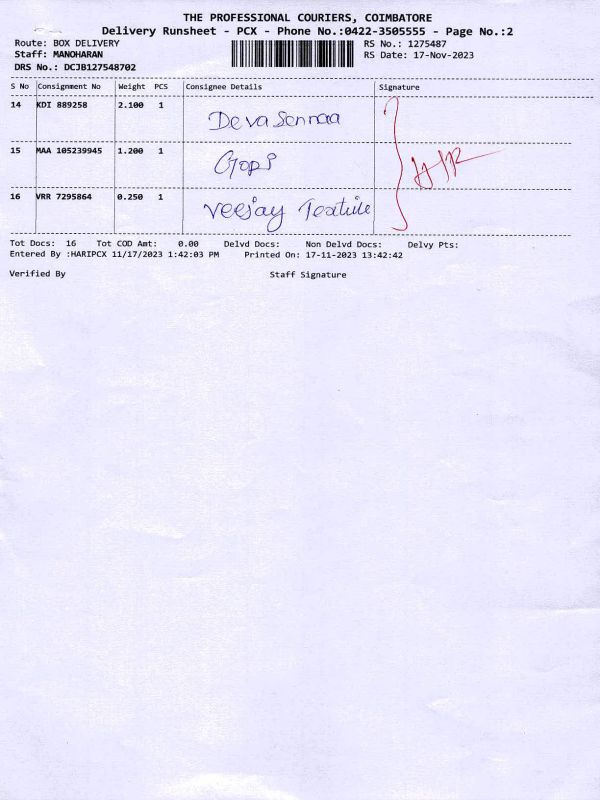 THE PROFESSIONAL COURIERS, COIMBATORE
Delivery Runsheet - PCX - Phone No.:0422-3505555 - Page No.:2
Route: BOX DELIVERY RS No.: 1275487
Staff: MANOHARAN RS Date: 17-Nov-2023
DRS No.: DCJB127548702
S No Consignment No Weight PCS Consignee Details Signature
14 KDI 889258 2.100 1
15 MAA 105239945 1.200 1 Gopi
16 VRR 7295864 0.250 1 Veejay Textile
Tot Docs: 16 Tot COD Amt: 0.00 Delvd Docs: Non Delvd Docs: Delvy Pts:
Entered By :HARIPCX 11/17/2023 1:42:03 PM Printed On: 17-11-2023 13:42:42
Verified By Staff Signature